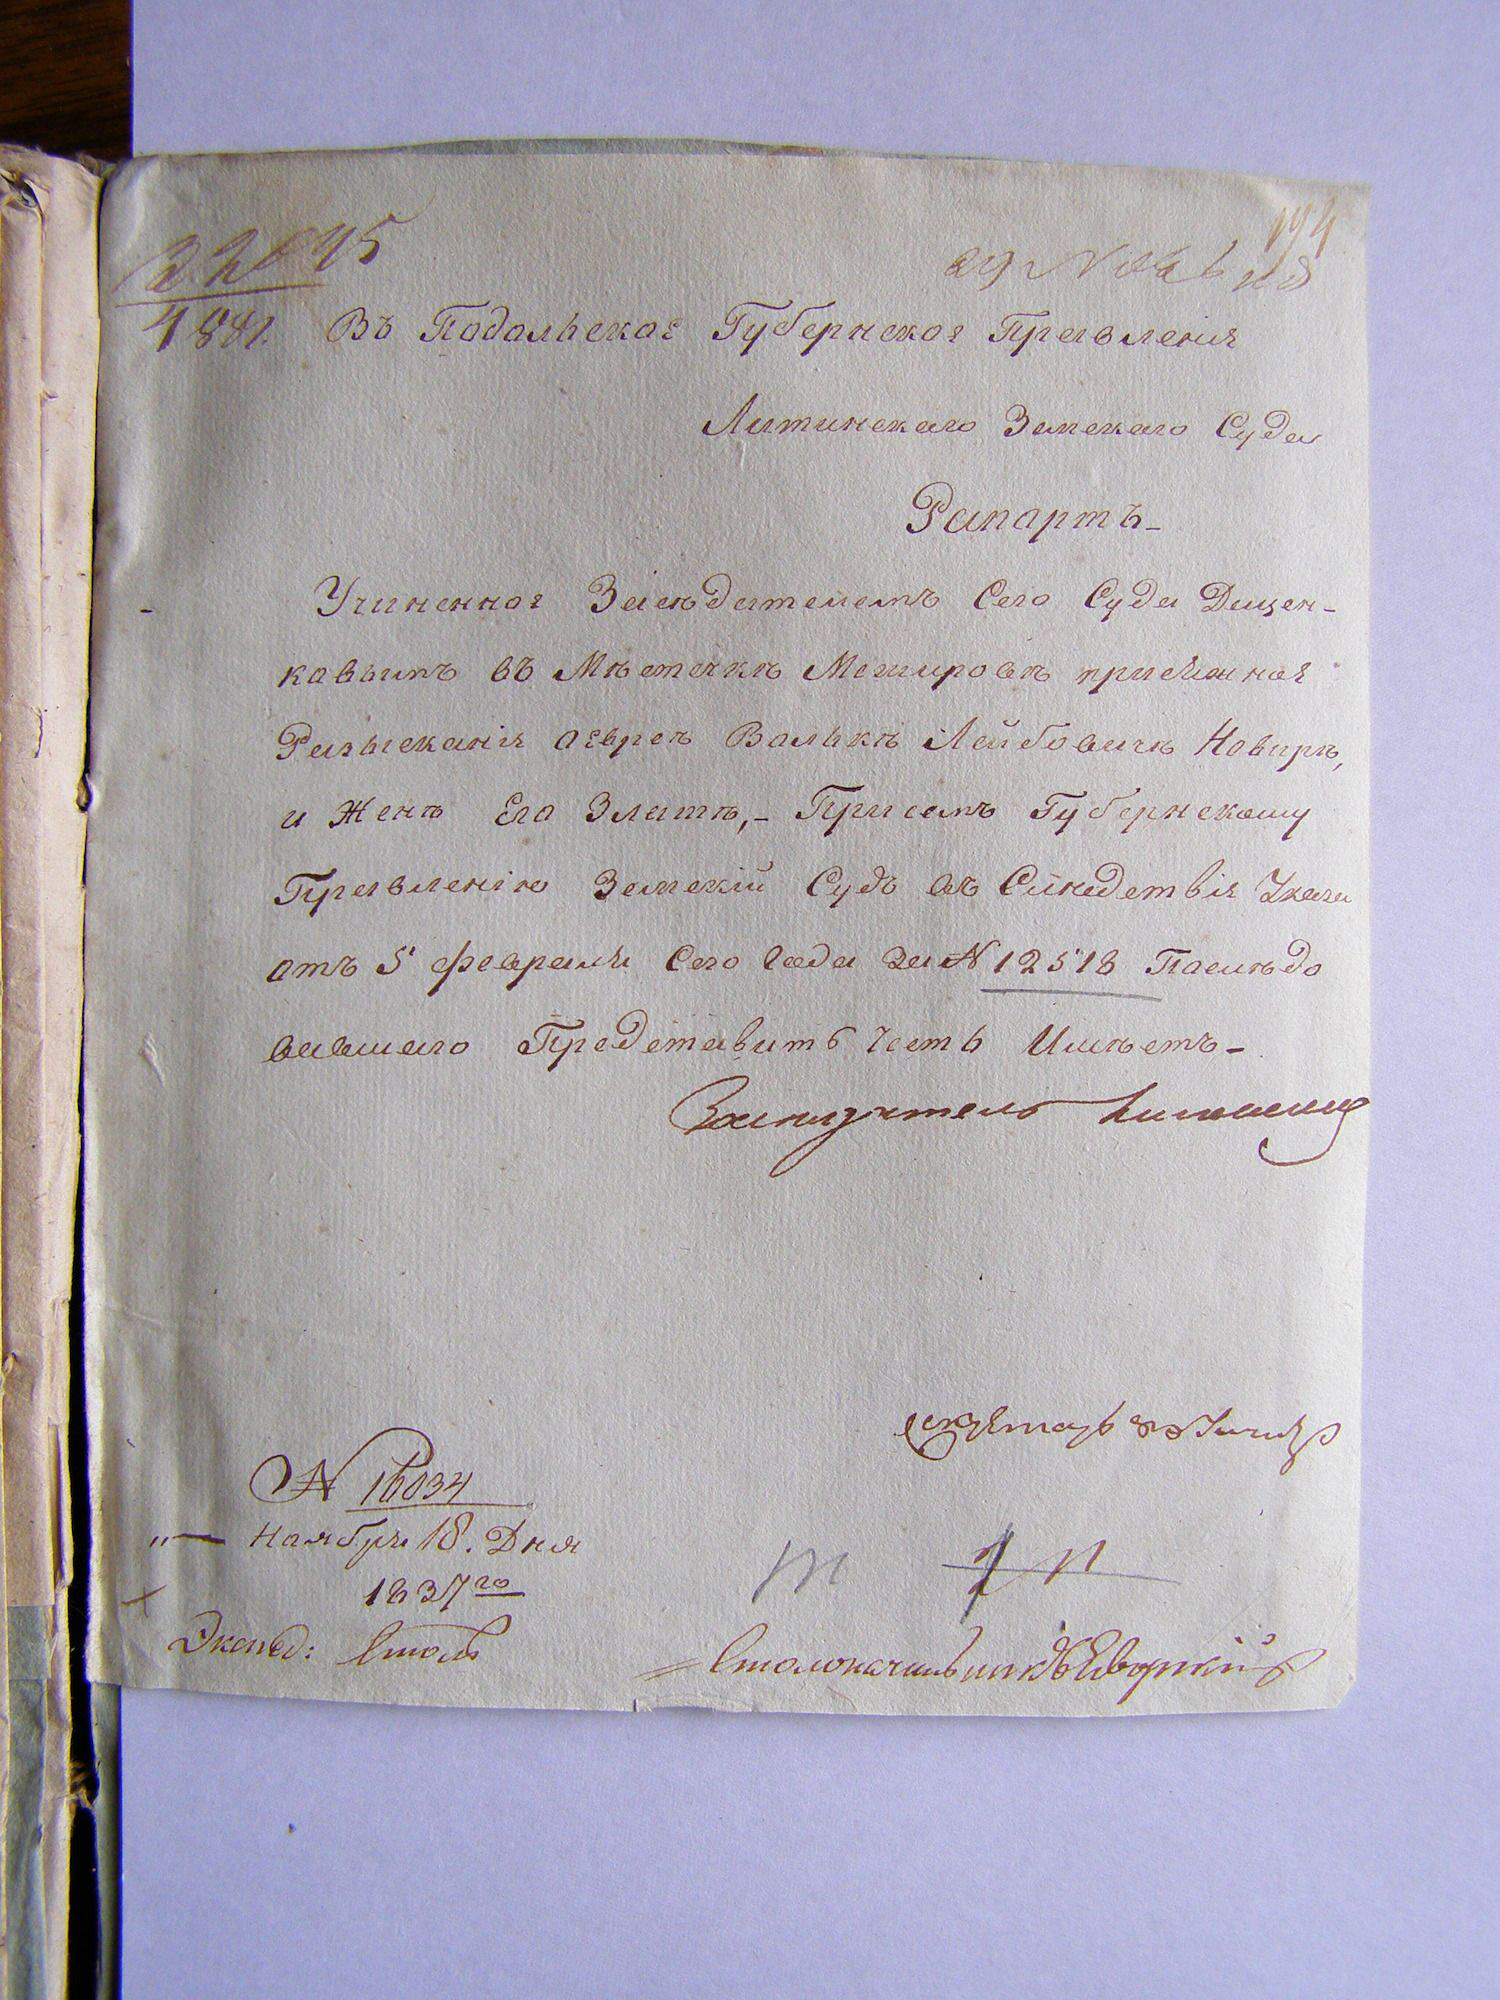 194
29 Ноября
4881. Въ Подольское Губернское Правленія
Литинскаго Земскаго Суда
Рапартъ
Учиненное Засѣдателемъ Сего Суда Дащен-
ковымъ въ Мѣстечкѣ Межировѣ
Разысканія оевреѣ Волькѣ Лейбовичѣ Новирѣ,
и Женѣ Его Златѣ,- Присемъ Губернскому
Правленію Земскій Судъ въ Слѣдствія Указа
отъ 5 февраля Сего Года За № 12518 Паслѣдо
вавшаго Представить Честь Имѣетъ-
Засѣдатель
Секретарь
№ 16034
Ноября 18. Дня
1837го
Экспед: Столъ
Столоначальникъ